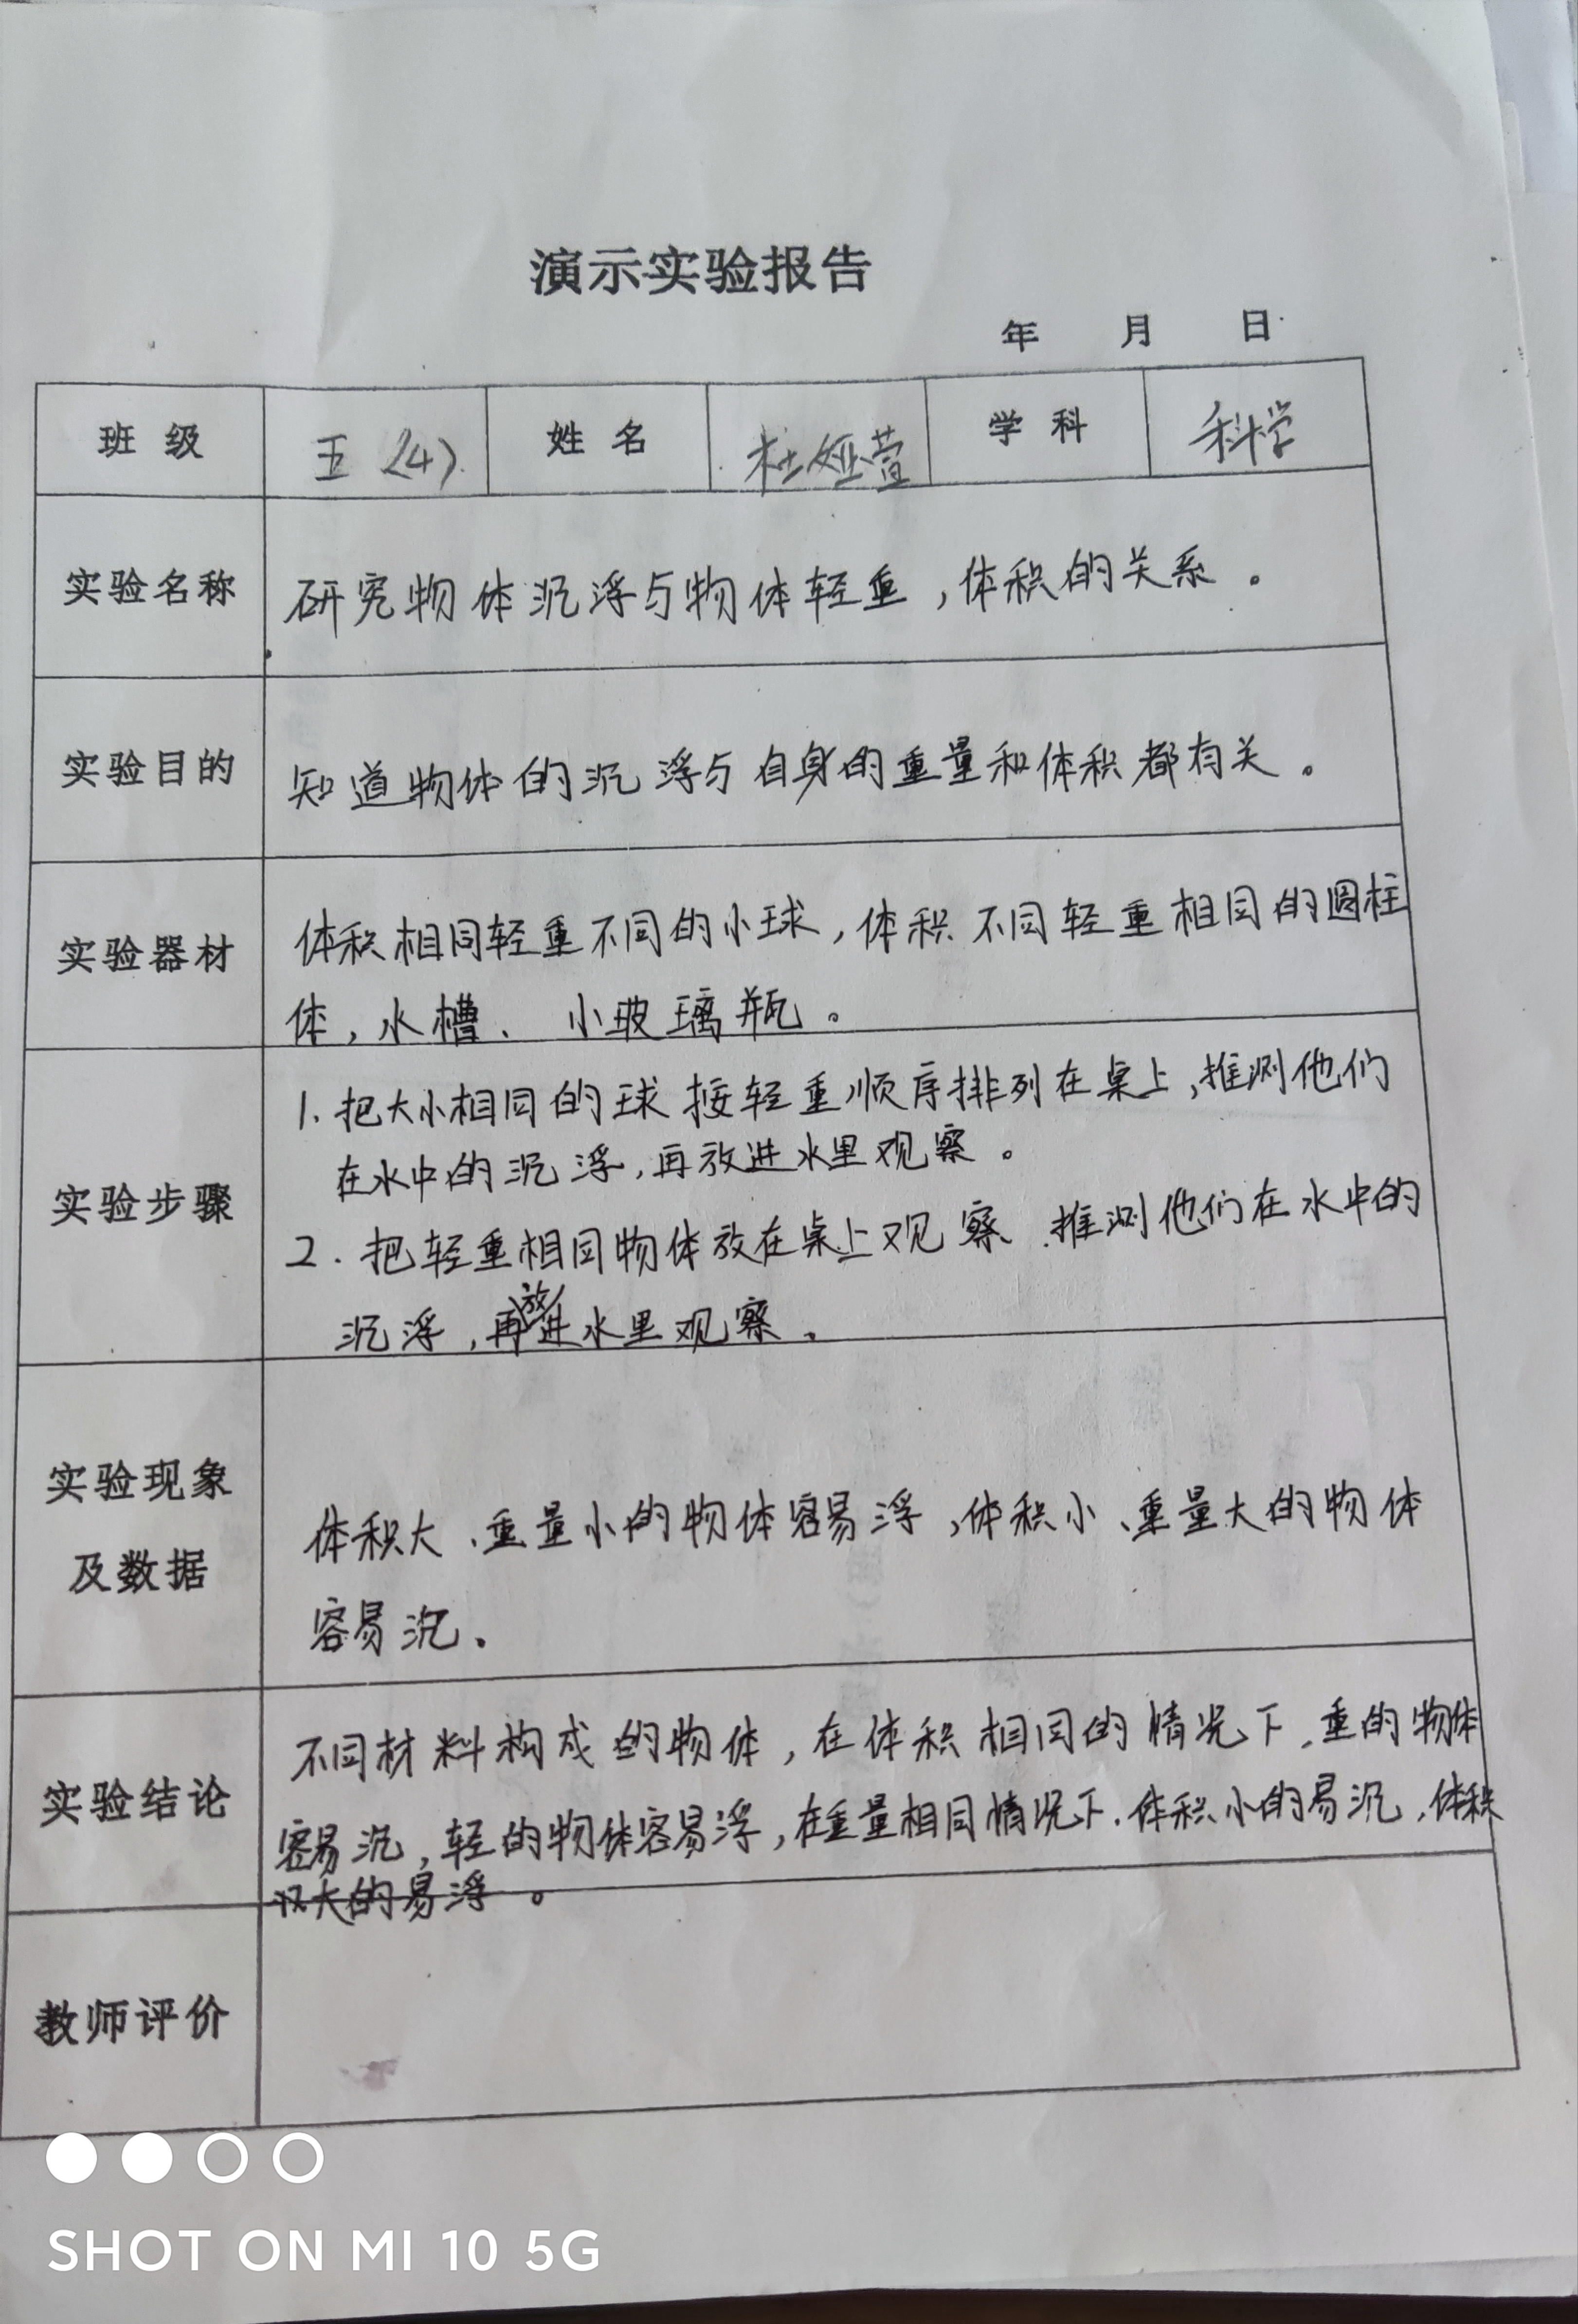 演示实验报告
年 月 日
班 级 五(4) 姓 名 杜娅萱 学 科 科学
实验名称 研究物体沉浮与物体轻重,体积的关系。
实验目的 知道物体的沉浮与自身的重量和体积都有关。
实验器材
体积相同轻重不同的小球,体积不同轻重相同的圆柱
体,水槽、小玻璃瓶。
实验步骤
1. 把大小相同的球按轻重顺序排列在桌上,推测他们
在水中的沉浮,再放进水里观察。
2. 把轻重相同物体放在桌上观察、推测他们在水中的
沉浮,再放进水里观察。
实验现象
及数据
体积大、重量小的物体容易浮,体积小、重量大的物体
容易沉。
实验结论
不同材料构成的物体,在体积相同的情况下,重的物体
容易沉,轻的物体容易浮,在重量相同情况下,体积小的易沉,体积
大的易浮。
教师评价
SHOT ON MI 10 5G